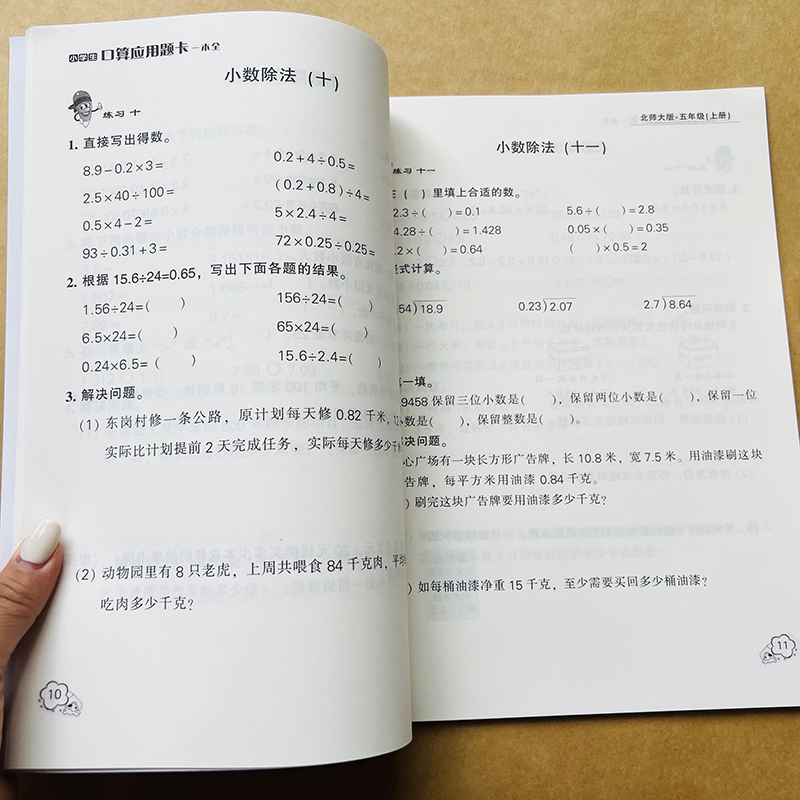 小学生 口算应用题卡 一本全
小数除法（十）
练习 十
1. 直接写出得数。
8.9－0.2×3＝ 0.2＋4÷0.5＝
2.5×40÷100＝ （0.2＋0.8）÷4＝
0.5×4－2＝ 5×2.4÷4＝
93÷0.31＋3＝ 72×0.25÷0.25＝
2. 根据 15.6÷24=0.65，写出下面各题的结果。
1.56÷24=( ) 156÷24=( )
6.5×24=( ) 65×24=( )
0.24×6.5=( ) 15.6÷2.4=( )
3. 解决问题。
(1) 东岗村修一条公路，原计划每天修 0.82 千米，
实际比计划提前 2 天完成任务，实际每天修多少千
(2) 动物园里有 8 只老虎，上周共喂食 84 千克肉，平
吃肉多少千克？
10
北师大版·五年级(上册)
小数除法（十一）
练习 十一
（ ）里填上合适的数。
2.3÷( )＝0.1 5.6÷( )＝2.8
4.28÷( )＝1.428 0.05×( )＝0.35
.2×( )＝0.64 ( )×0.5＝2
竖式计算。
54)18.9 0.23)2.07 2.7)8.64
填一填。
9458 保留三位小数是( )，保留两位小数是( )，保留一位
小数是( )，保留整数是( )。
解决问题。
心广场有一块长方形广告牌，长 10.8 米，宽 7.5 米。用油漆刷这块
告牌，每平方米用油漆 0.84 千克。
) 刷完这块广告牌要用油漆多少千克？
) 如每桶油漆净重 15 千克，至少需要买回多少桶油漆？
11